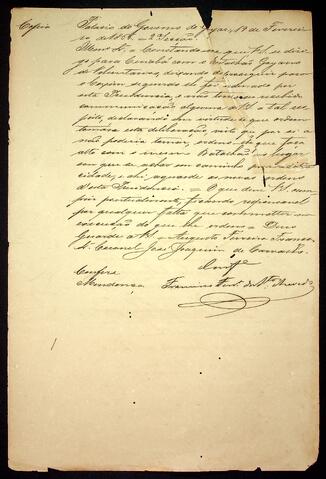 Copia Palacio do Governo de Goyaz, 19 de Feverei-
ro de 1856. — 2ª Secção.
Illmo Sr. — Constando-me que V.S. se diri-
ge para Cuiabá com o Batalhão Goyano
de Voluntarios, deixando de seguir para
o Coxim segundo lhe foi ordenado por
esta Presidencia, e não tendo recebido
communicação alguma de V.S. a tal res-
peito, declarando em virtude de que ordem
tomára esta deliberação, visto que por si a
não poderia tomar, ordeno-lhe que faça
alto com o mesmo Batalhão no lugar
em que se achar em caminho para aquella
cidade, e ahi aguarde as novas ordens
d'esta Presidencia. = O que dê V.S. cum-
prir pontualmente, ficando responsavel
por qualquer falta que commetter na
execução do que lhe ordeno. = Deus
Guarde a V.S. = Augusto Ferreira França
Sr. Coronel José Joaquim de Carvalho.
Confere
Mendonça Francisco